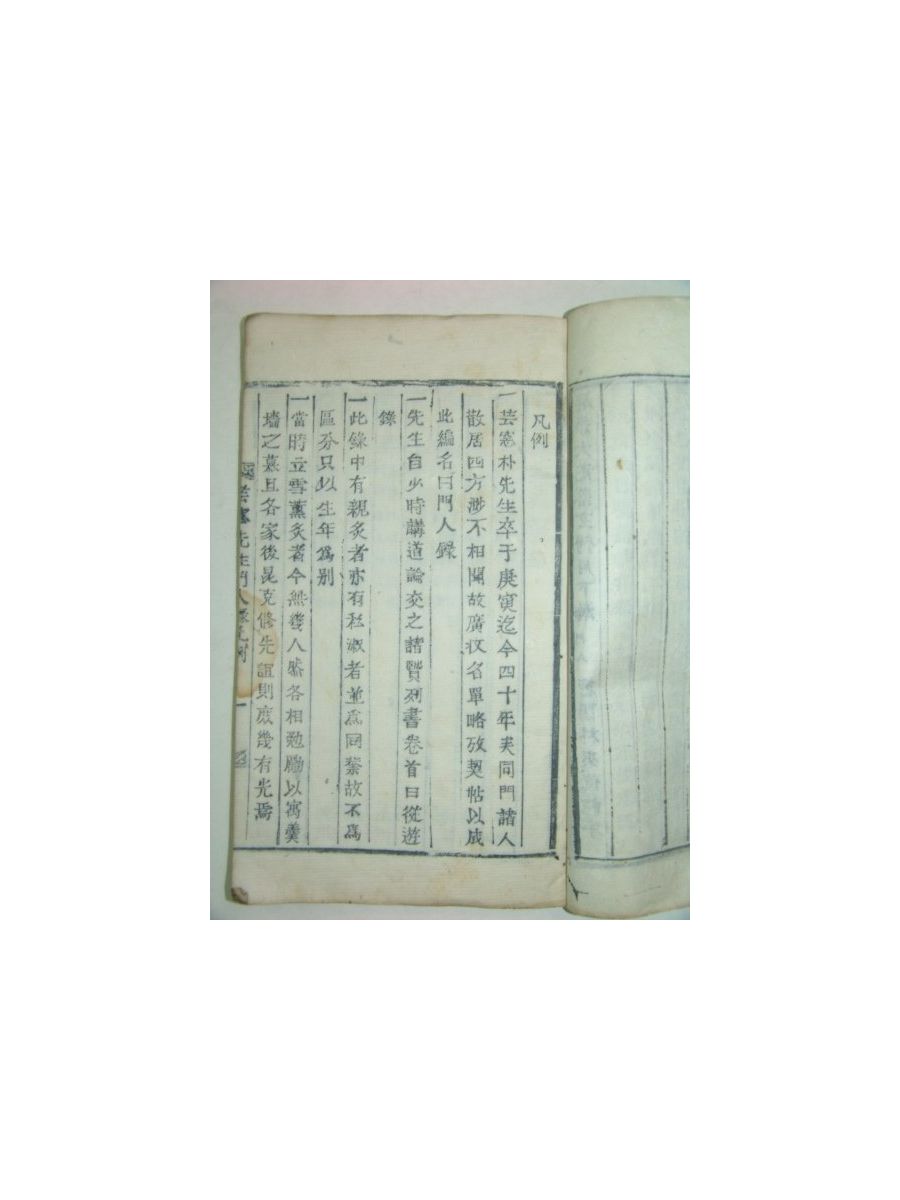 凡例
一芸窓朴先生卒于庚寅迄今四十年矣同門諸人
散居四方渉不相聞故廣收名單略攷契帖以成
此編名曰門人錄
一先生自少時講道論交之諸賢列書卷首曰從遊
錄
一此錄中有親炙者亦有私淑者並爲同槃故不爲
區分只以生年爲別
一當時立雪薰炙者今無幾人然各相勉勵以寓羹
墻之慕且各家後昆克修先誼則庶幾有光焉
芸窓先生門人錄凡例 一